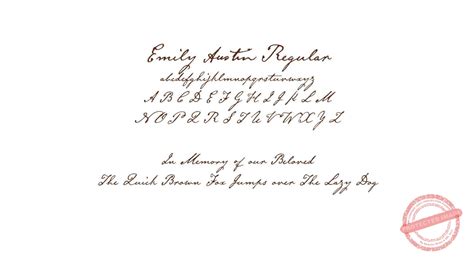 Emily Austin Regular
abcdefghijklmnopqrstuvwxyz
A B C D E F G H I J K L M
N O P Q R S T U V W X Y Z
In Memory of our Beloved
The Quick Brown Fox Jumps over The Lazy Dog